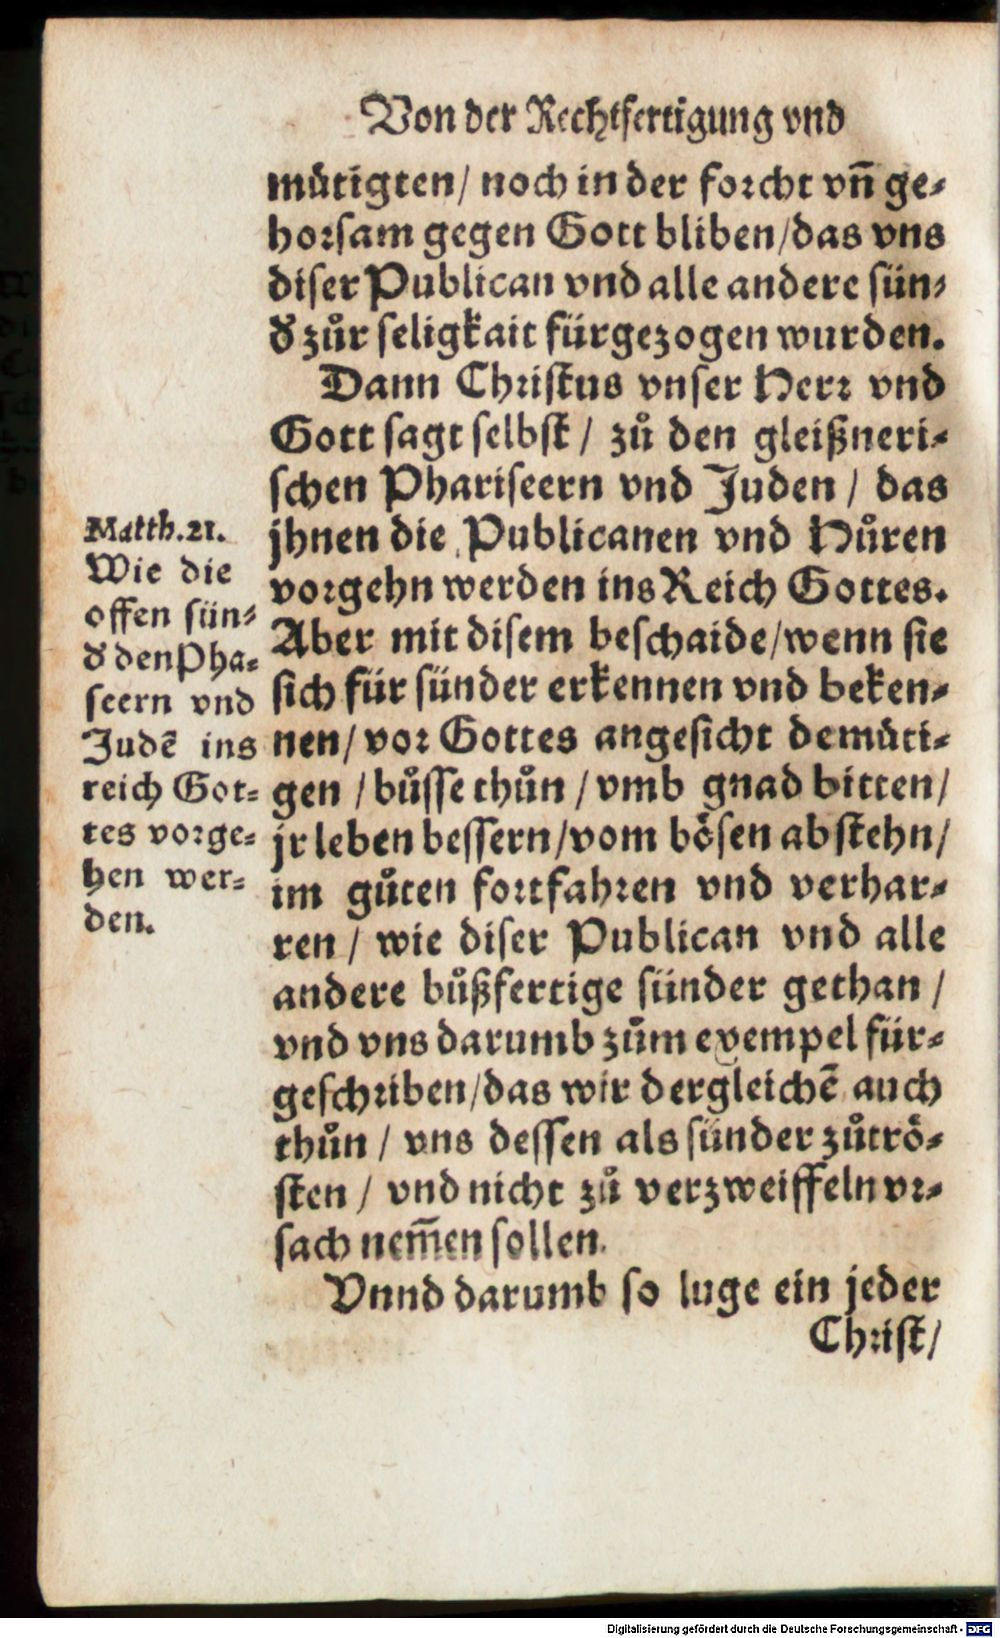 Von der Rechtfertigung vnd
muͤtigten/ noch in der forcht vn̄ ge⸗
horsam gegen Gott bliben/das vns
diser Publican vnd alle andere sün⸗
d' zuͦr seligkait fürgezogen wurden.
Dann Christus vnser Herr vnd
Gott sagt selbst / zuͦ den gleißneri⸗
schen Phariseern vnd Juden / das
jhnen die Publicanen vnd Huͦren
vorgehn werden ins Reich Gottes.
Aber mit disem beschaide/wenn sie
sich für sünder erkennen vnd beken⸗
nen/ vor Gottes angesicht demuͤti⸗
gen / buͦsse thuͦn / vmb gnad bitten/
jr leben bessern/vom boͤsen abstehn/
im guͦten fortfahren vnd verhar⸗
ren / wie diser Publican vnd alle
andere buͦßfertige sünder gethan /
vnd vns darumb zuͦm exempel für⸗
geschriben/das wir dergleichē auch
thuͦn / vns dessen als sünder zuͦtroͤ⸗
sten / vnd nicht zuͦ verzweiffeln vr⸗
sach nem̄en sollen.
Vnnd darumb so luge ein jeder
Christ/
Matth.21.
Wie die
offen sün⸗
d' den Pha⸗
seern vnd
Judē ins
reich Got⸗
tes vorge⸗
hen wer⸗
den.
Digitalisierung gefördert durch die Deutsche Forschungsgemeinschaft - DFG